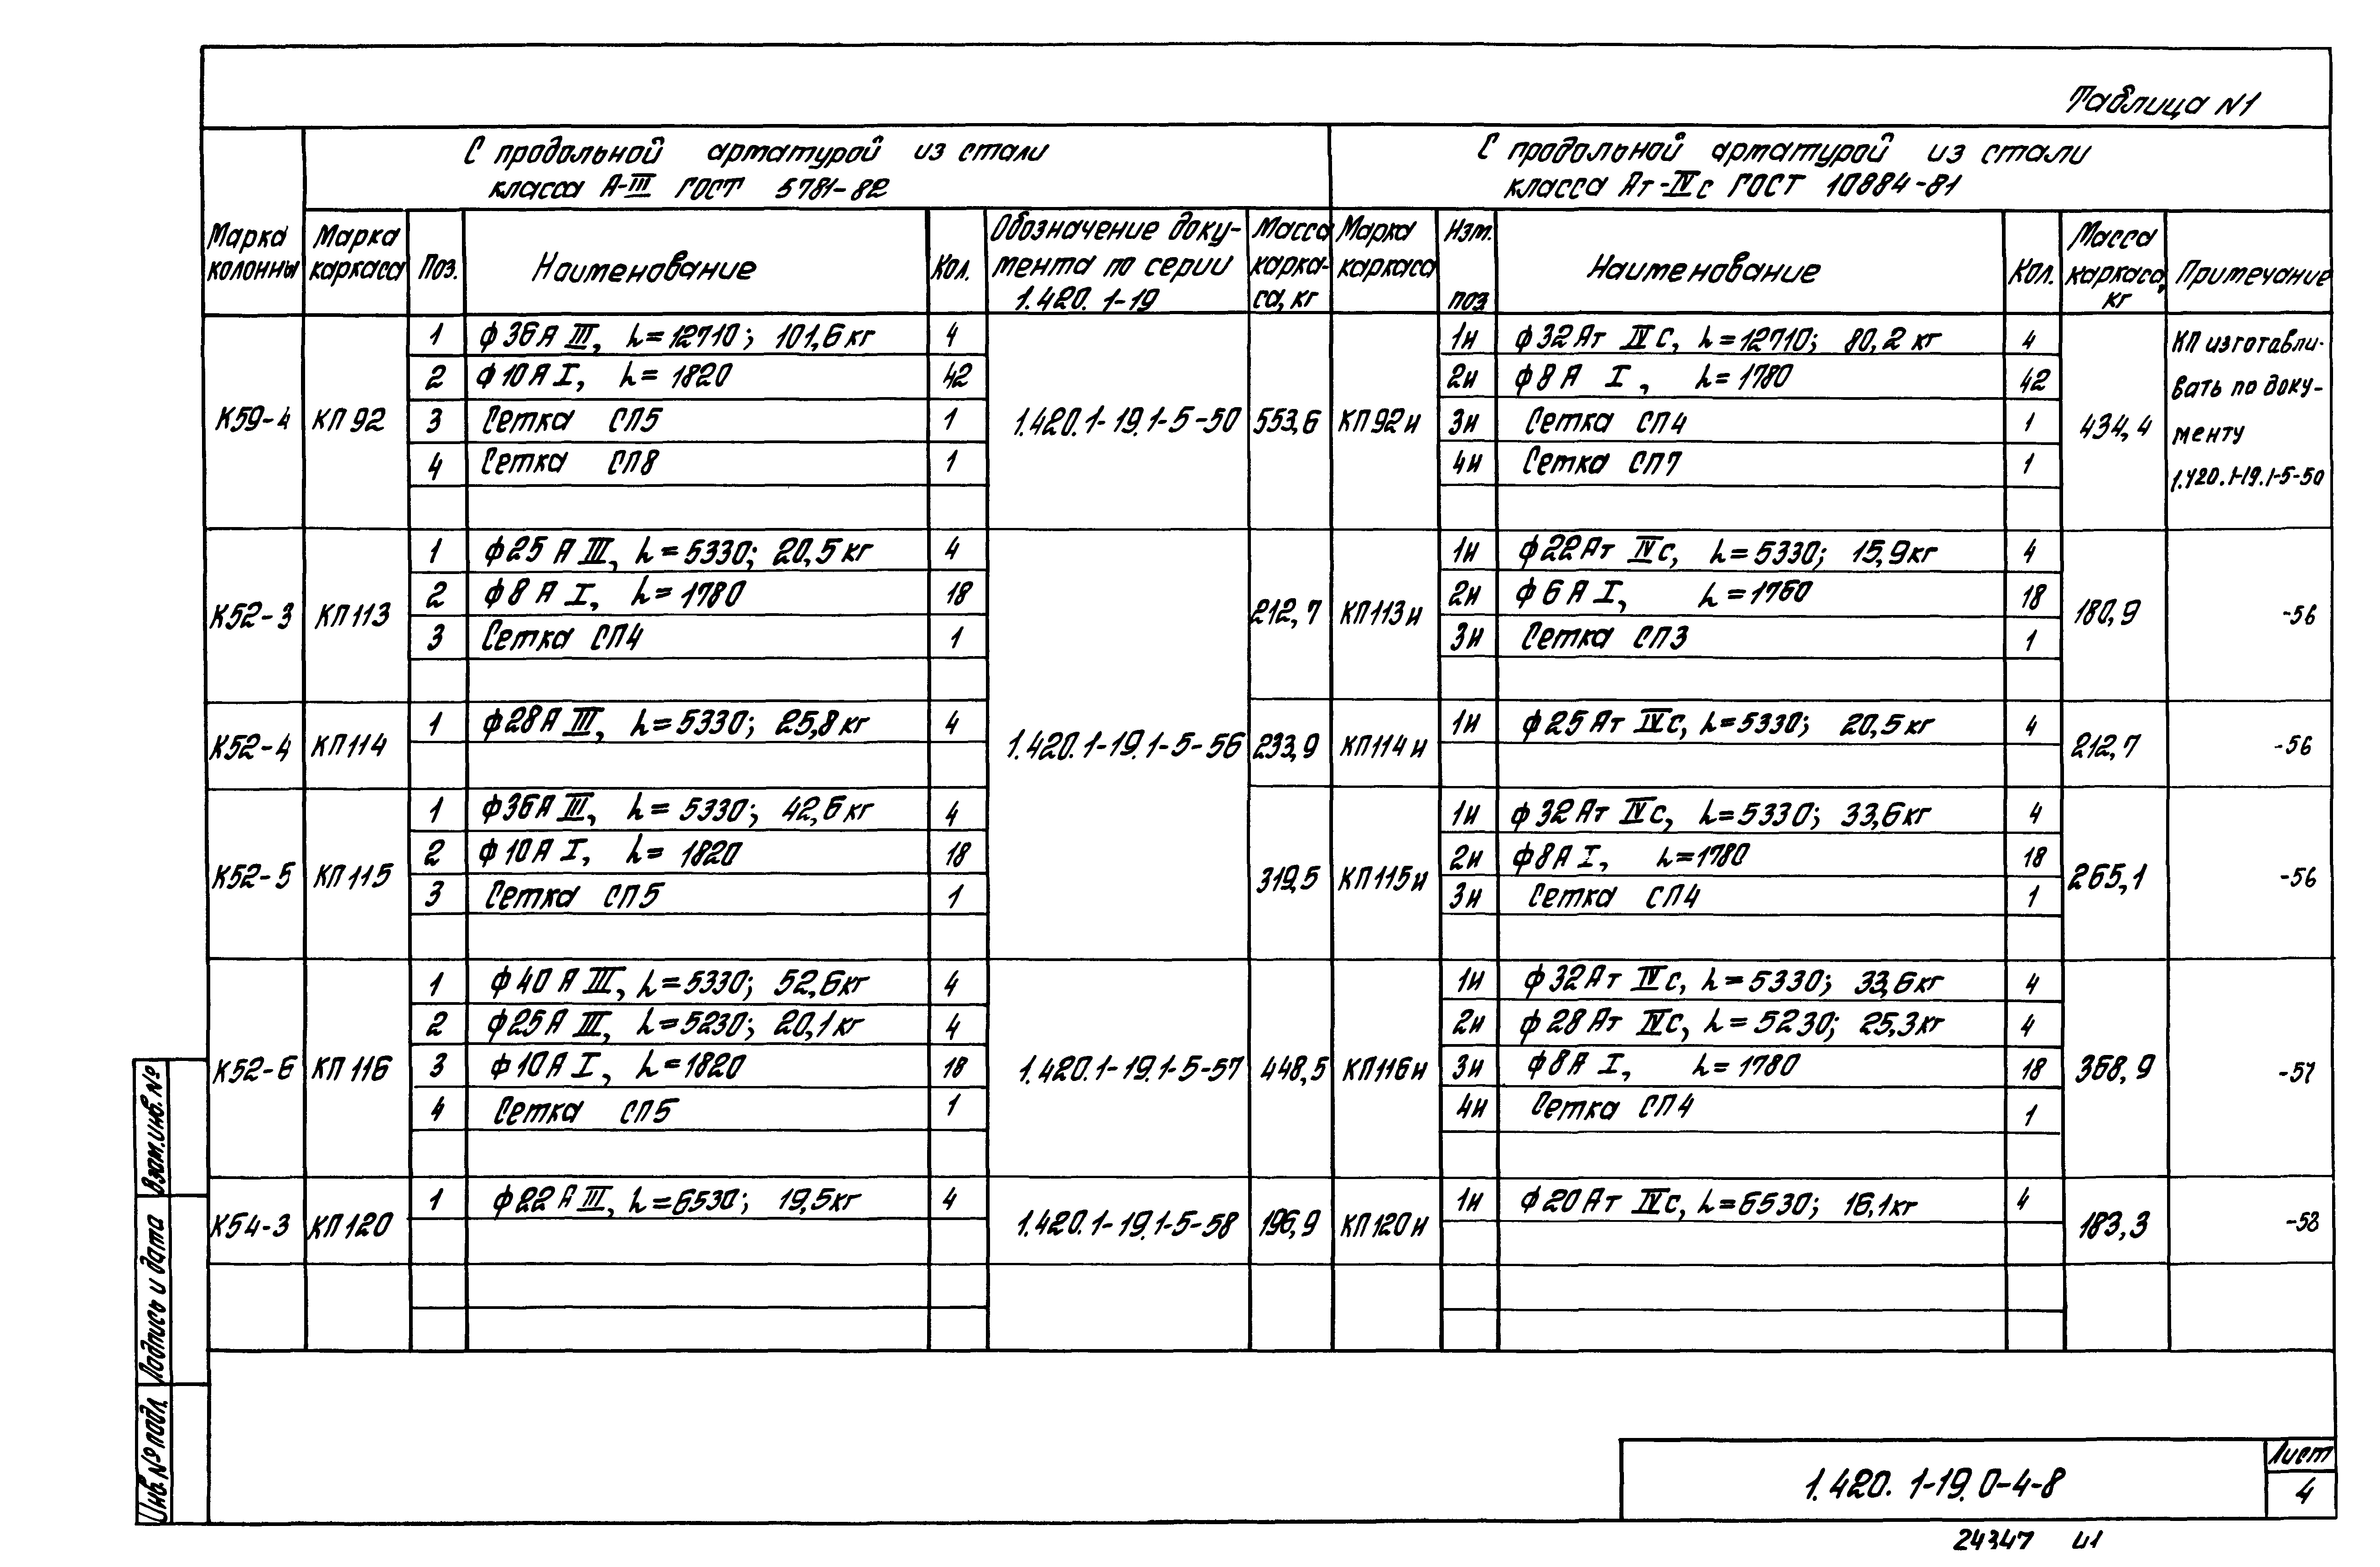 Таблица N1
С продольной арматурой из стали
класса А-III ГОСТ 5781-82
С продольной арматурой из стали
класса Ат-IVс ГОСТ 10884-81
Марка колонны | Марка каркаса | Поз. | Наименование | Кол. | Обозначение доку-мента по серии 1.420.1-19 | Масса карка-са, кг | Марка каркаса | Изм. поз | Наименование | Кол. | Масса каркаса, кг | Примечание
К59-4 | КП 92 | 1.420.1-19.1-5-50 | 553,6 | КП92и | 434,4 | КП изготавли-
вать по доку-
менту
1.420.1-19.1-5-50
1 | ф36А III, L=12710; 101,6кг | 4 | 1и | ф32Ат IVС, L=12710; 80,2 кг | 4
2 | ф10А I, L=1820 | 42 | 2и | ф8А I, L=1780 | 42
3 | Сетка СП5 | 1 | 3и | Сетка СП4 | 1
4 | Сетка СП8 | 1 | 4и | Сетка СП7 | 1
К52-3 | КП113 | 212,7 | КП113и | 180,9 | -56
1 | ф25 А III, L=5330; 20,5кг | 4 | 1и | ф22Ат IVс, L=5330; 15,9кг | 4
2 | ф8 А I, L=1780 | 18 | 2и | ф6А I, L=1760 | 18
3 | Сетка СП4 | 1 | 3и | Сетка СП3 | 1
К52-4 | КП114 | 1.420.1-19.1-5-56 | 233,9 | КП114и | 212,7 | -56
1 | ф28А III, L=5330; 25,8кг | 4 | 1и | ф25Ат IVс, L=5330; 20,5кг | 4
К52-5 | КП115 | 319,5 | КП115и | 265,1 | -56
1 | ф36А III, L=5330; 42,6кг | 4 | 1и | ф32Ат IVс, L=5330; 33,6кг | 4
2 | ф10А I, L=1820 | 18 | 2и | ф8А I, L=1780 | 18
3 | Сетка СП5 | 1 | 3и | Сетка СП4 | 1
К52-6 | КП 116 | 1.420.1-19.1-5-57 | 448,5 | КП116и | 368,9 | -57
1 | ф40 А III, L=5330; 52,6кг | 4 | 1и | ф32Ат IVс, L=5330; 33,6кг | 4
2 | ф25А III, L=5230; 20,1кг | 4 | 2и | ф28Ат IVс, L=5230; 25,3кг | 4
3 | ф10А I, L=1820 | 18 | 3и | ф8А I, L=1780 | 18
4 | Сетка СП5 | 1 | 4и | Сетка СП4 | 1
К54-3 | КП120 | 1.420.1-19.1-5-58 | 196,9 | КП120и | 183,3 | -58
1 | ф22А III, L=6530; 19,5кг | 4 | 1и | ф20Ат IVс, L=6530; 16,1кг | 4
Взам.инв.№
Подпись и дата
Инв.№ подл.
1.420.1-19.0-4-8
Лист
4
24347 41